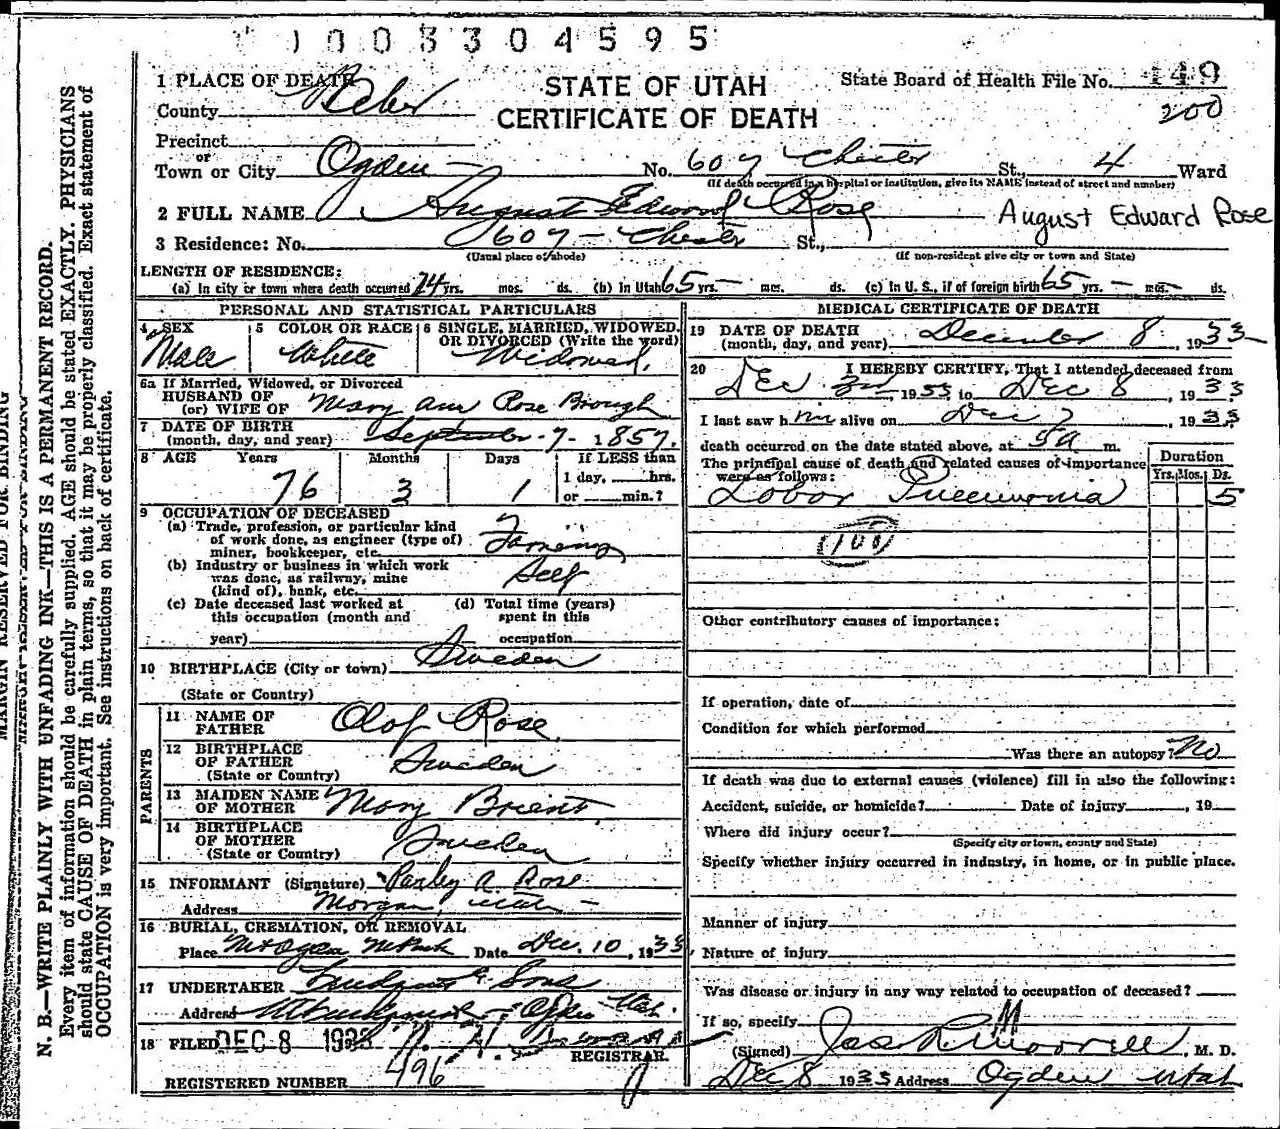 1003304595
STATE OF UTAH
CERTIFICATE OF DEATH
State Board of Health File No. 149
200
1 PLACE OF DEATH
County Weber
Precinct
or
Town or City Ogden No. 607 Chester St., 4 Ward
(If death occurred in a hospital or institution, give its NAME instead of street and number)
2 FULL NAME August Edword Rose August Edward Rose
3 Residence: No. 607 - Chester St.,
(Usual place of abode) (If non-resident give city or town and State)
LENGTH OF RESIDENCE:
(a) In city or town where death occurred 24 yrs. mos. ds. (b) In Utah 65 yrs. - mos. ds. (c) In U. S., if of foreign birth 65 yrs. - mos. - ds.
PERSONAL AND STATISTICAL PARTICULARS
4 SEX Male
5 COLOR OR RACE White
6 SINGLE, MARRIED, WIDOWED, OR DIVORCED (Write the word) Widowed.
6a If Married, Widowed, or Divorced
HUSBAND OF
(or) WIFE OF Mary Ann Rose Brough
7 DATE OF BIRTH
(month, day, and year) September - 7 - 1857.
8 AGE Years Months Days If LESS than
76 3 1 1 day, hrs.
or min.?
9 OCCUPATION OF DECEASED
(a) Trade, profession, or particular kind
of work done, as engineer (type of)
miner, bookkeeper, etc. Farming
(b) Industry or business in which work
was done, as railway, mine
(kind of), bank, etc. Self
(c) Date deceased last worked at
this occupation (month and
year)
(d) Total time (years)
spent in this
occupation
10 BIRTHPLACE (City or town) Sweden
(State or Country)
PARENTS
11 NAME OF
FATHER Olof Rose
12 BIRTHPLACE
OF FATHER Sweden
(State or Country)
13 MAIDEN NAME
OF MOTHER Mary Brient
14 BIRTHPLACE
OF MOTHER Sweden
(State or Country)
15 INFORMANT (Signature) Parley A. Rose
Address Morgan, Utah -
16 BURIAL, CREMATION, OR REMOVAL
Place Mt Ogden Date Dec. 10, 1933
17 UNDERTAKER & Sons
Address Ogden Utah.
18 FILED DEC 8 1933
REGISTRAR.
REGISTERED NUMBER 496
MEDICAL CERTIFICATE OF DEATH
19 DATE OF DEATH
(month, day, and year) December 8, 1933
20 I HEREBY CERTIFY, That I attended deceased from
Dec 3rd, 1933 to Dec 8, 1933
I last saw him alive on Dec 7, 1933
death occurred on the date stated above, at 5 a m.
The principal cause of death and related causes of importance
were as follows:
Duration
Yrs. Mos. Ds.
Lobar Pneumonia 5
(108)
Other contributory causes of importance:
If operation, date of
Condition for which performed
Was there an autopsy? No
If death was due to external causes (violence) fill in also the following:
Accident, suicide, or homicide? Date of injury , 19
Where did injury occur?
(Specify city or town, county and State)
Specify whether injury occurred in industry, in home, or in public place.
Manner of injury
Nature of injury
Was disease or injury in any way related to occupation of deceased?
If so, specify
(Signed) Jas R. Morrell, M. D.
Dec 8 1933 Address Ogden Utah
MARGIN RESERVED FOR BINDING
N. B.—WRITE PLAINLY WITH UNFADING INK—THIS IS A PERMANENT RECORD.
Every item of information should be carefully supplied. AGE should be stated EXACTLY. PHYSICIANS
should state CAUSE OF DEATH in plain terms, so that it may be properly classified. Exact statement of
OCCUPATION is very important. See instructions on back of certificate.